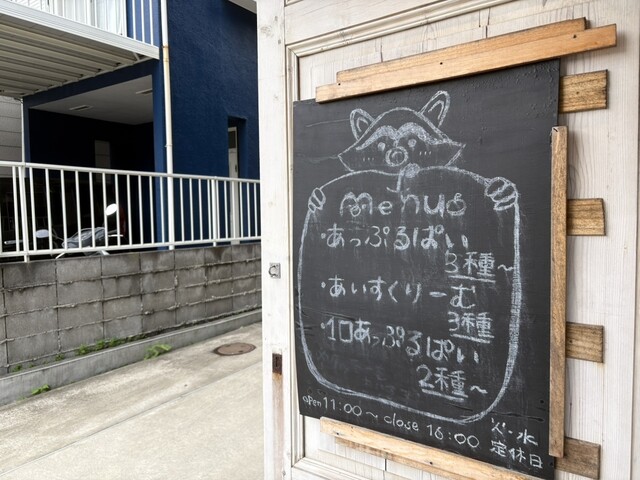 Menu
・あっぷるぱい
3種~
・あいすくりーむ
3種
・1口あっぷるぱい
2種~
open 11:00~ close 16:00
火・水
定休日